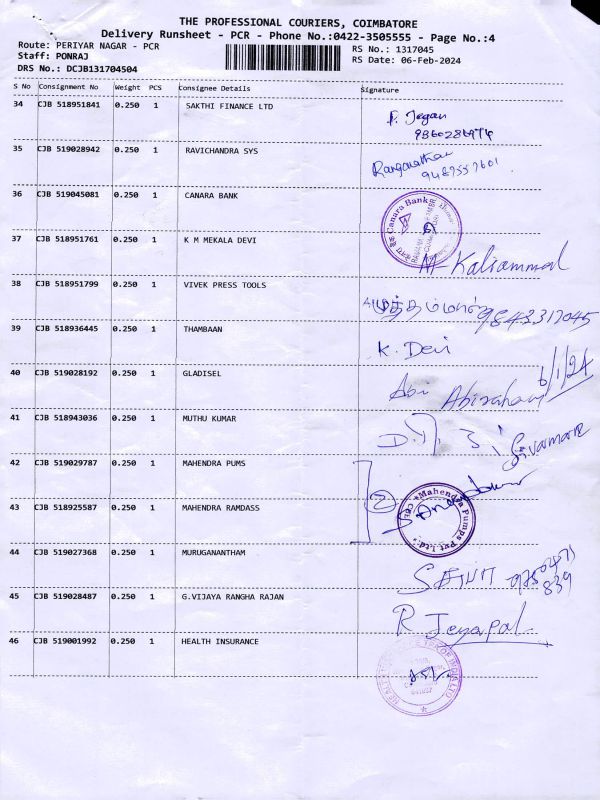 THE PROFESSIONAL COURIERS, COIMBATORE
Delivery Runsheet - PCR - Phone No.:0422-3505555 - Page No.:4
Route: PERIYAR NAGAR - PCR
RS No.: 1317045
Staff: PONRAJ
RS Date: 06-Feb-2024
DRS No.: DCJB131704504
S No Consignment No Weight PCS Consignee Details Signature
34 CJB 518951841 0.250 1 SAKTHI FINANCE LTD
P. Jegan
35 CJB 519028942 0.250 1 RAVICHANDRA SYS
Ranganathan
9487557601
36 CJB 519045081 0.250 1 CANARA BANK
Canara Bank
37 CJB 518951761 0.250 1 K M MEKALA DEVI
M- Kaliammal
38 CJB 518951799 0.250 1 VIVEK PRESS TOOLS
9843317045
39 CJB 518936445 0.250 1 THAMBAAN
K. Devi
40 CJB 519028192 0.250 1 GLADISEL
6/1/24
41 CJB 518943036 0.250 1 MUTHU KUMAR
42 CJB 519029787 0.250 1 MAHENDRA PUMS
2
Mahendra Pumps Pvt Ltd.
43 CJB 518925587 0.250 1 MAHENDRA RAMDASS
44 CJB 519027368 0.250 1 MURUGANANTHAM
45 CJB 519028487 0.250 1 G.VIJAYA RANGHA RAJAN
R Jeyapal
46 CJB 519001992 0.250 1 HEALTH INSURANCE